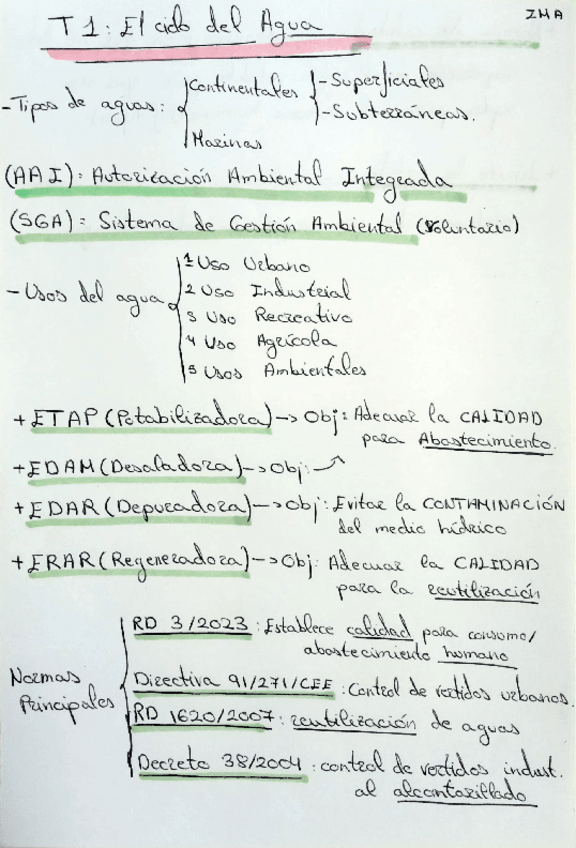 ZMA
T1: El ciclo del Agua
- Tipos de aguas: Continentales - Superficiales
- Subterráneas.
Marinas
(AAI): Autorización Ambiental Integrada
(SGA): Sistema de Gestión Ambiental (Voluntario)
- Usos del agua
1 Uso Urbano
2 Uso Industrial
3 Uso Recreativo
4 Uso Agrícola
5 Usos Ambientales
+ ETAP (Potabilizadora) -> Obj: Adecuar la CALIDAD
para Abastecimiento.
+ EDAM (Desaladora) -> Obj:
+ EDAR (Depuradora) -> Obj: Evitar la CONTAMINACIÓN
del medio hídrico
+ ERAR (Regeneradora) -> Obj: Adecuar la CALIDAD
para la reutilización
Normas
Principales
RD 3/2023: Establece calidad para consumo/
abastecimiento humano
Directiva 91/271/CEE: Control de vertidos urbanos.
RD 1620/2007: reutilización de aguas
Decreto 38/2004: control de vertidos indust.
al alcantarillado